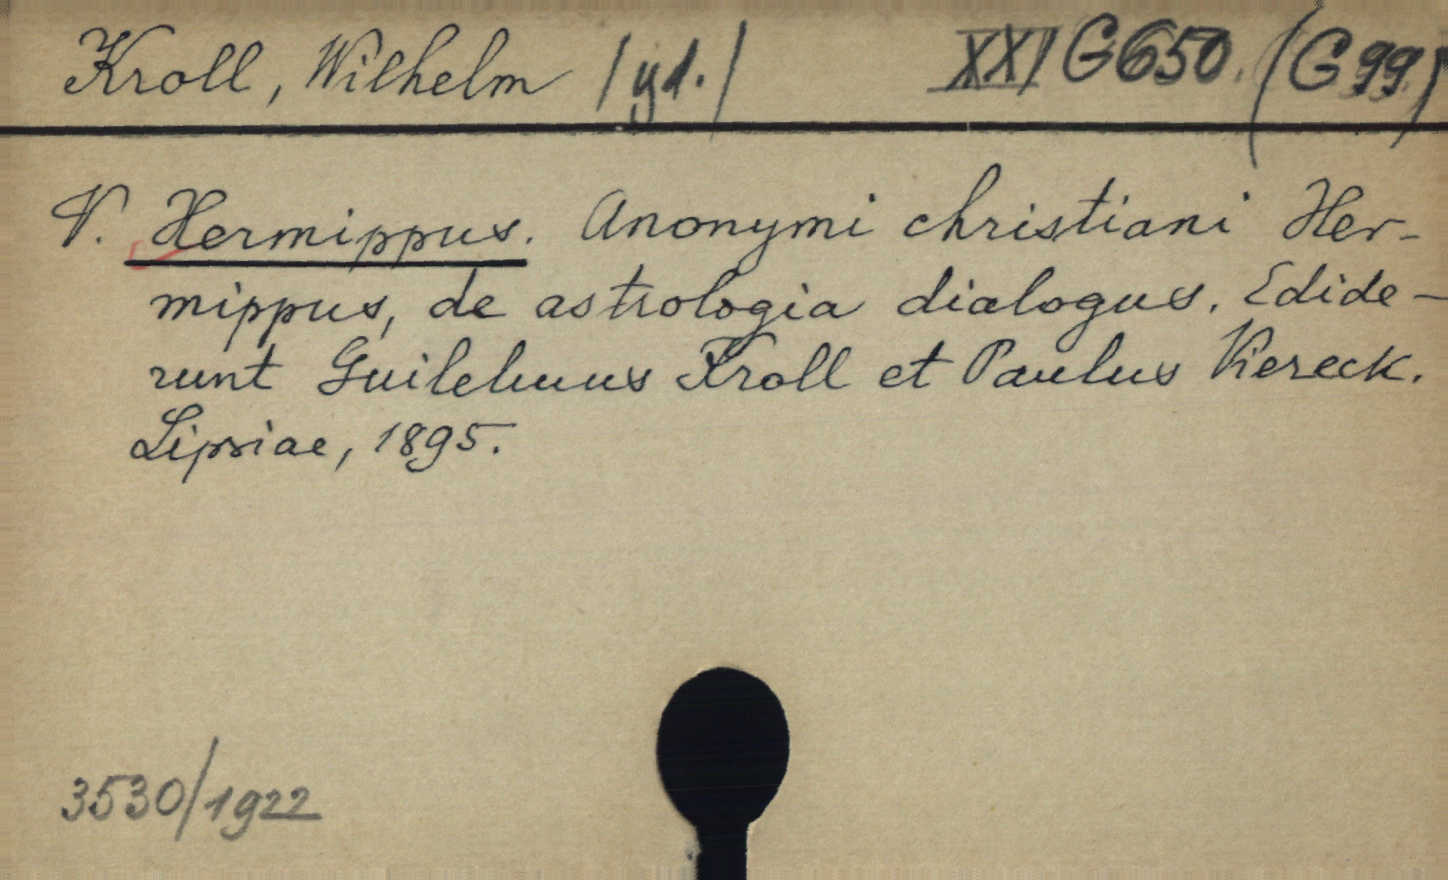 Kroll, Wilhelm /yd./ XXI G650. (G99.)
V. Hermippus. Anonymi christiani Her-
mippus, de astrologia dialogus. Edide-
runt Guilelmus Kroll et Paulus Viereck.
Lipsiae, 1895.
3530/1922